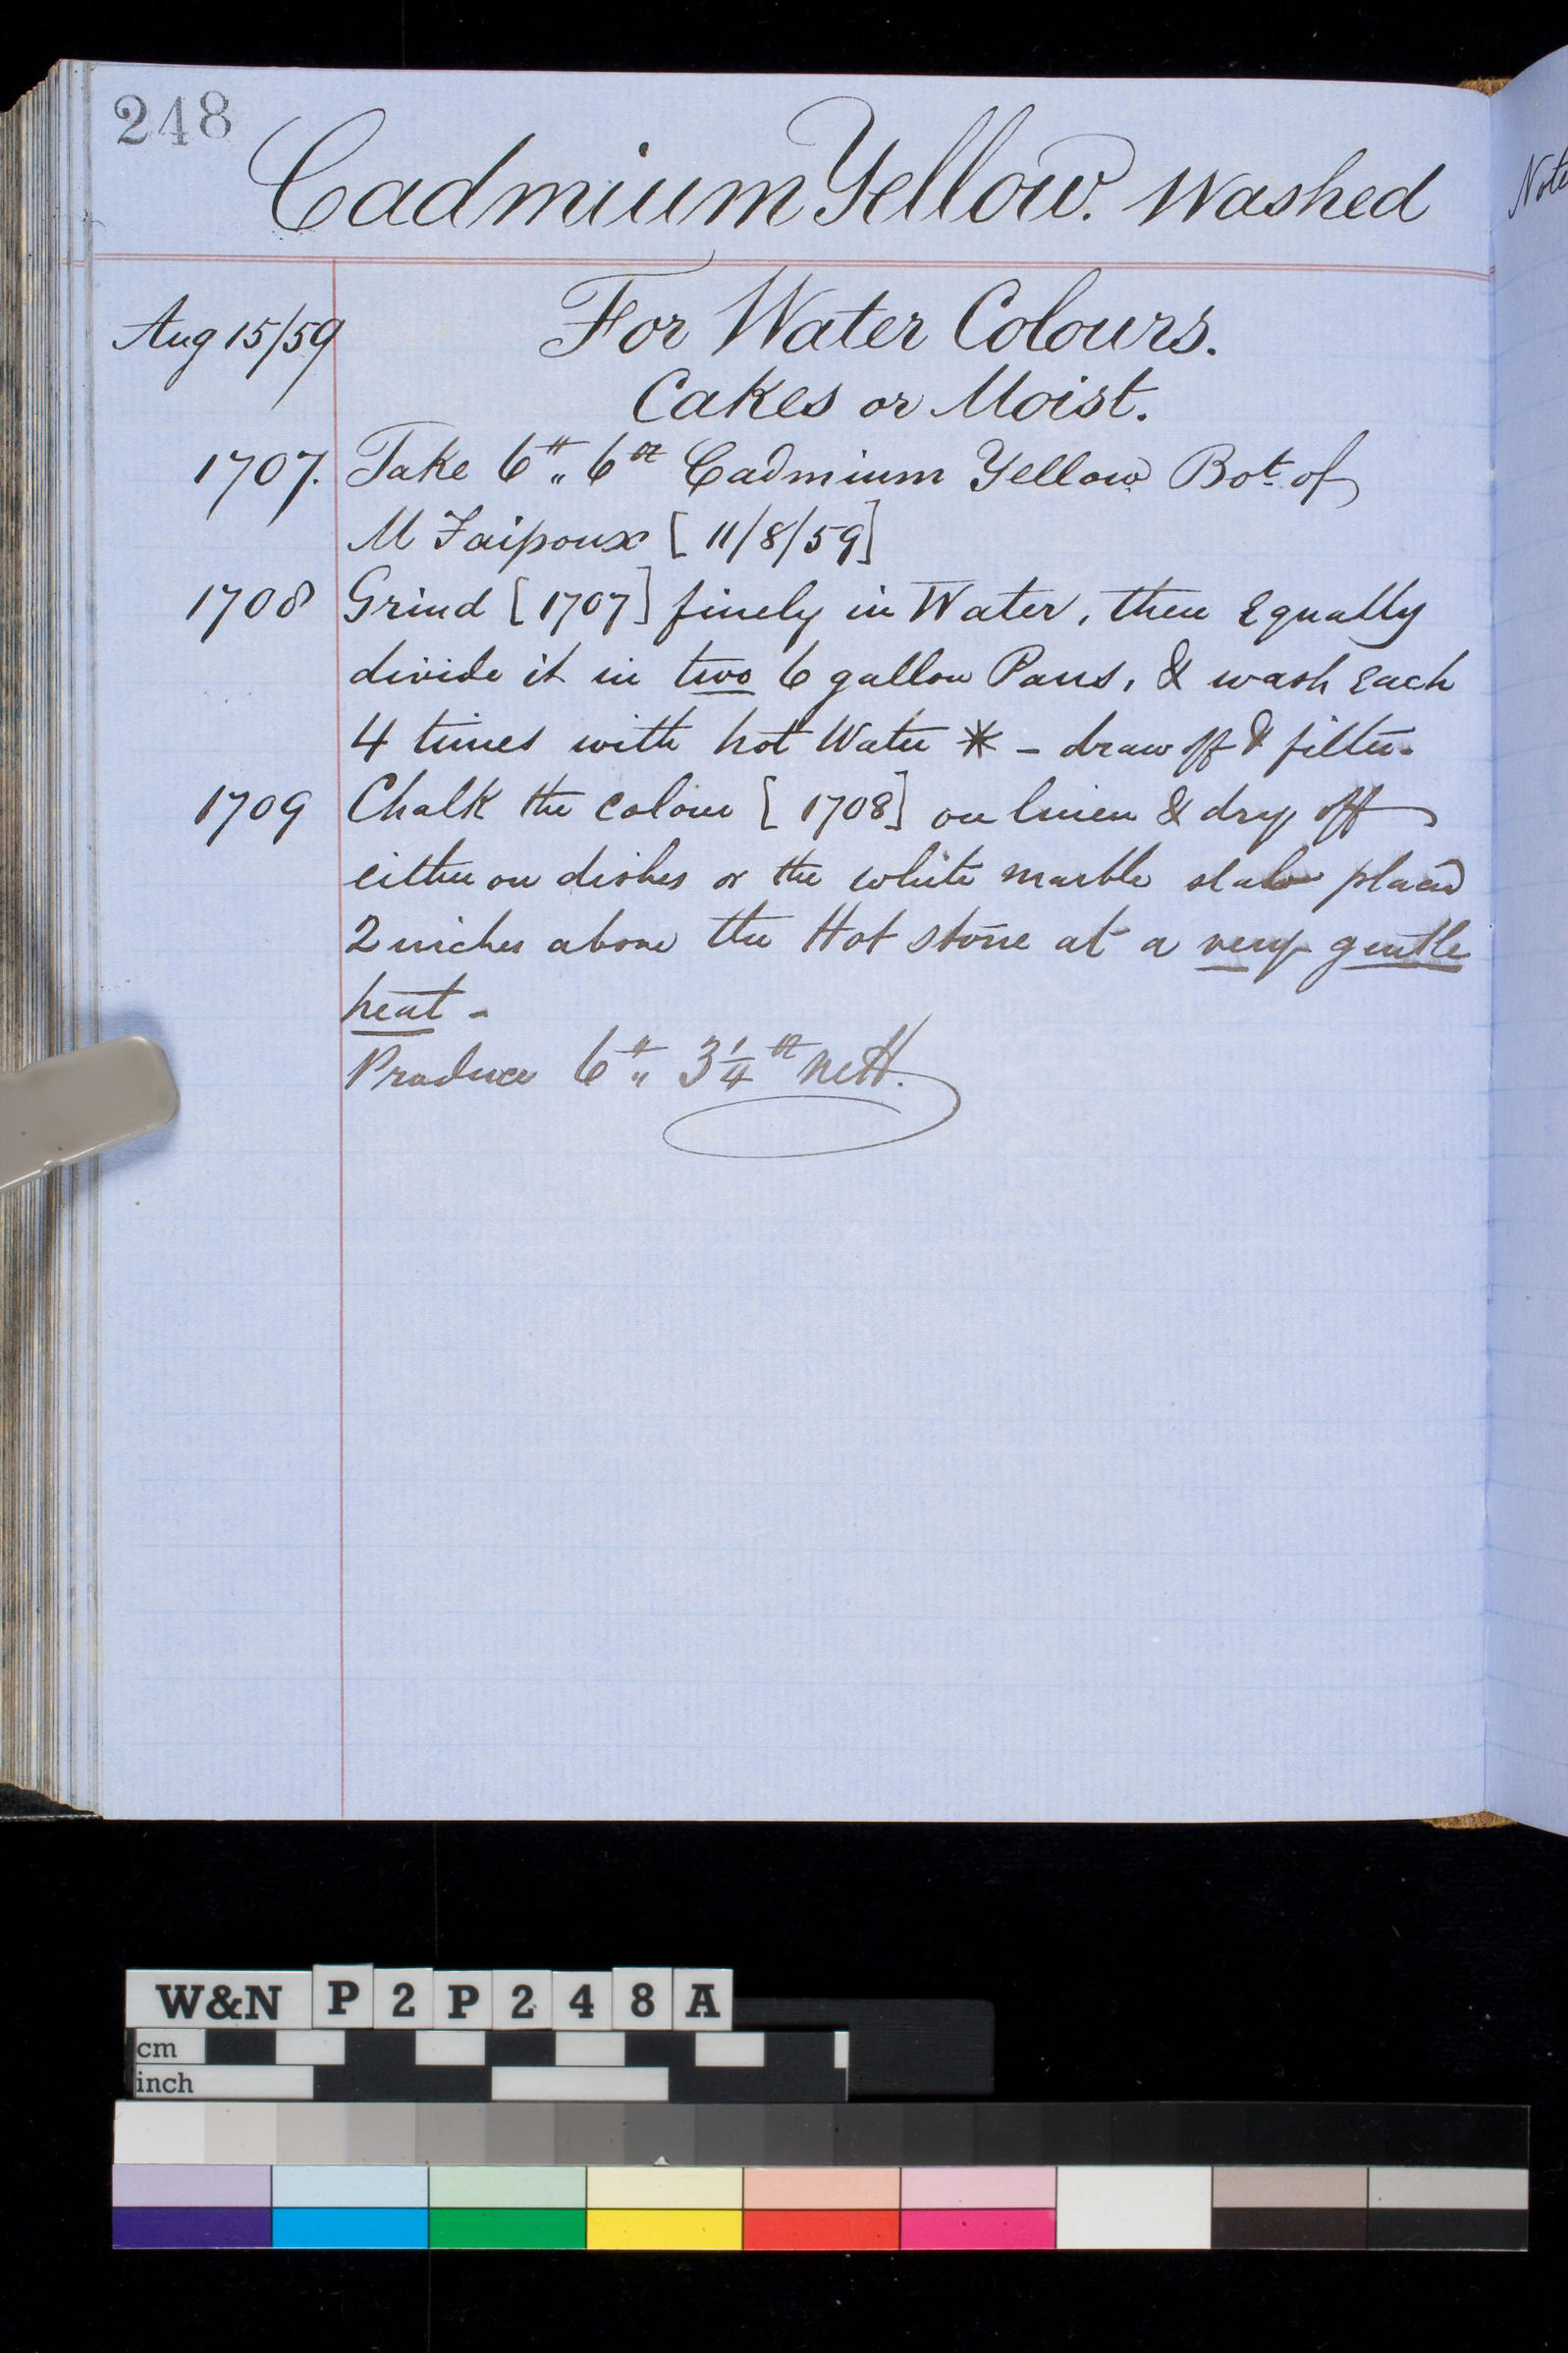 248
Cadmium Yellow. Washed
Note
Aug 15/59
For Water Colours.
Cakes or Moist.
1707. Take 6 ℔ „ 6 oz Cadmium Yellow Bot. of
M [11/8/59]
1708 Grind [1707] finely in Water, then Equally
divide it in two 6 gallon Pans, & wash Each
4 times with hot Water * – draw off & filter.
1709 Chalk the Colour [1708] on linen & dry off
either on dishes or the white marble slab placed
2 inches above the Hot stone at a very gentle
heat –
Produce 6 ℔ „ 3 1/4 oz nett.
W&N P2P248A
cm
inch